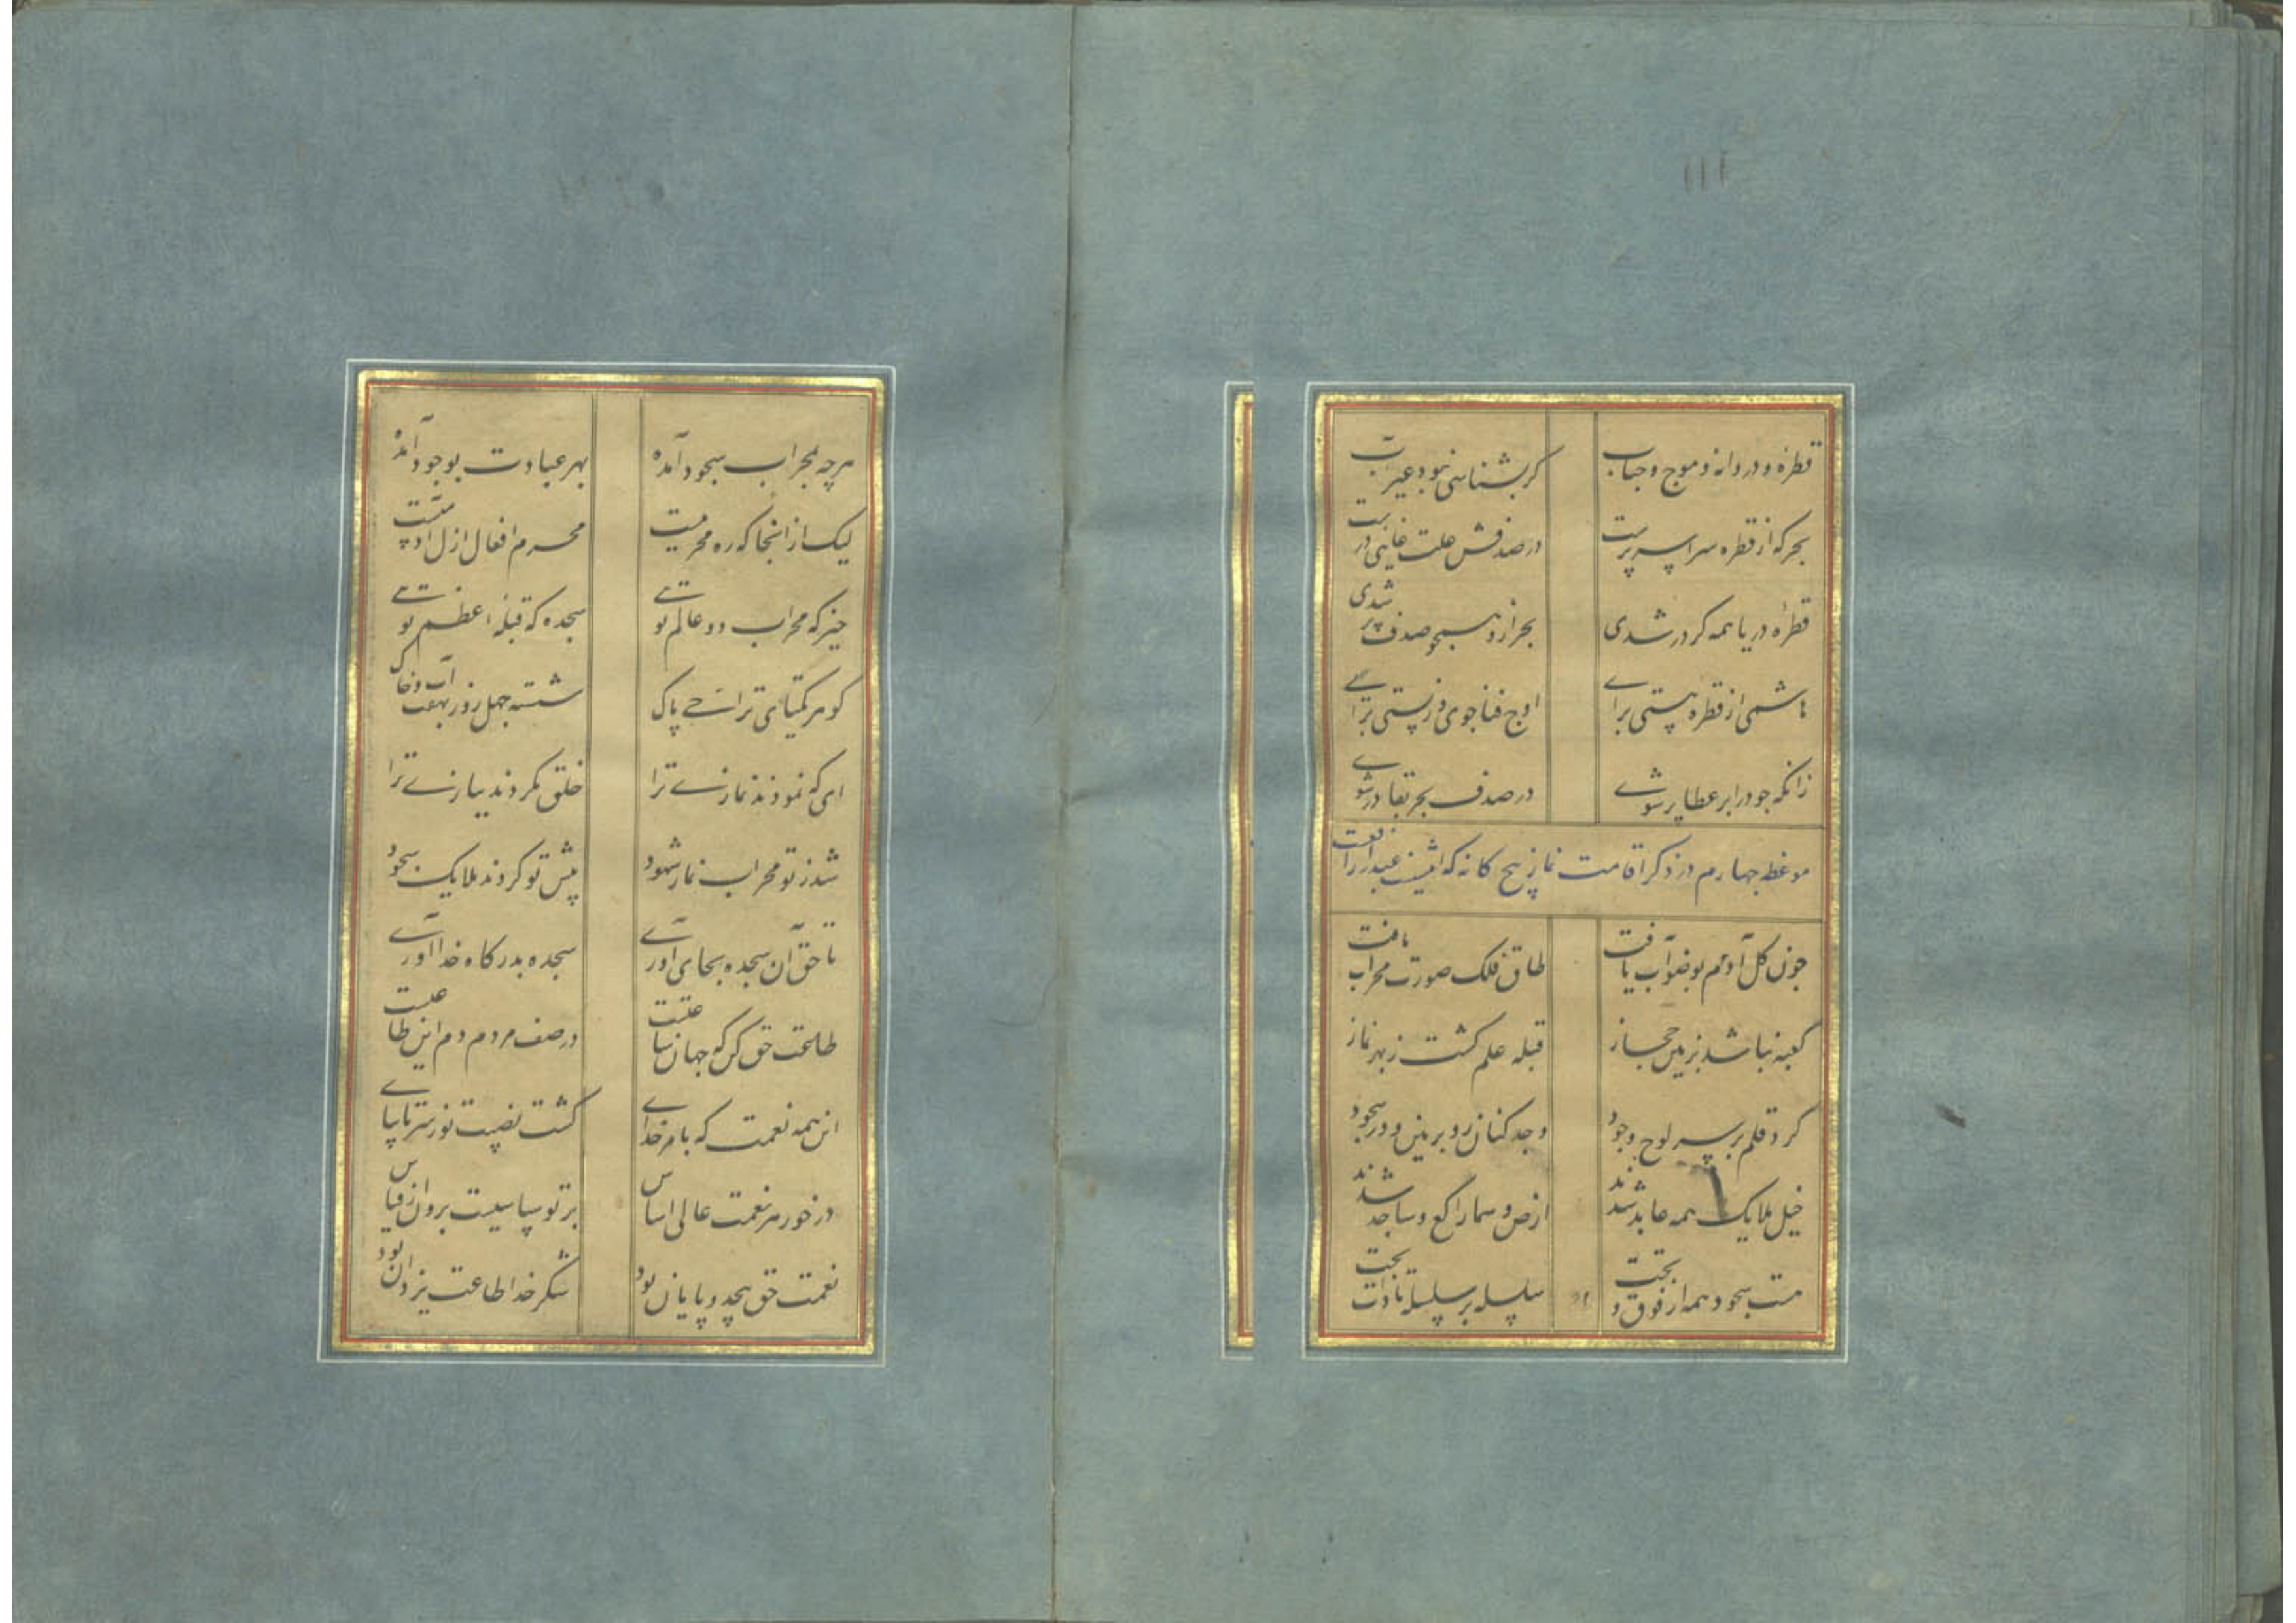 ۱۱۱
قطره و دردانه و موج و حباب
کر بشناسی نبود غیر آب
بحر که از قطره سراسر پرست
در صدفش علت غایی درست
قطرهٔ دریا همه کر در شدی
بحر ازو همچو صدف پر شدی
هاشمی از قطره هستی برای
اوج فنا جوی و ز پستی برای
زانکه جو در ابر عطا پر شوی
در صدف بحر بقا در شوی
موعظه جهارم در ذکر اقامت نماز پنج کانه که
جون کل آدم بوضو آب یافت
طاق فلک صورت محراب یافت
کعبه نباشد بزمین حجاز
قبله علم کشت ز بهر نماز
کرد قلم بر سر لوح وجود
وجد کنان رو بزمین در سجود
خیل ملایک همه عابد شدند
ارض و سما راکع و ساجد شدند
هست سجود همه از فوق و تحت
سلسله بر سلسله تا ذات بحت
هرچه بمحراب سجود آمده
بهر عبادت بوجود آمده
لیک از آنجا که ره محرمیت
محرم افعال ازل آدمیست
خیز که محراب دو عالم توی
سجده که قبلهٔ اعظم توی
کوهر یکتای ترا نی پاک
شسته جهل روز بهفت آب و خاک
ای که نمودند نمازی ترا
خلق نکردند ببازی ترا
شد ز تو محراب نماز شهود
پیش تو کردند ملایک سجود
تا حق آن سجده بجای آوری
سجده بدرکاه خدا آوری
طاعت حق کن که جهان ساعتیست
در صف مردم دم این طاعتیست
این همه نعمت که بامر خدای
کشت نصیب تو ز سر تا بپای
در خور هر نعمت عالی اساس
بر تو سپاسیست برون از قیاس
نعمت حق بیحد و پایان بود
شکر خدا طاعت یزدان بود